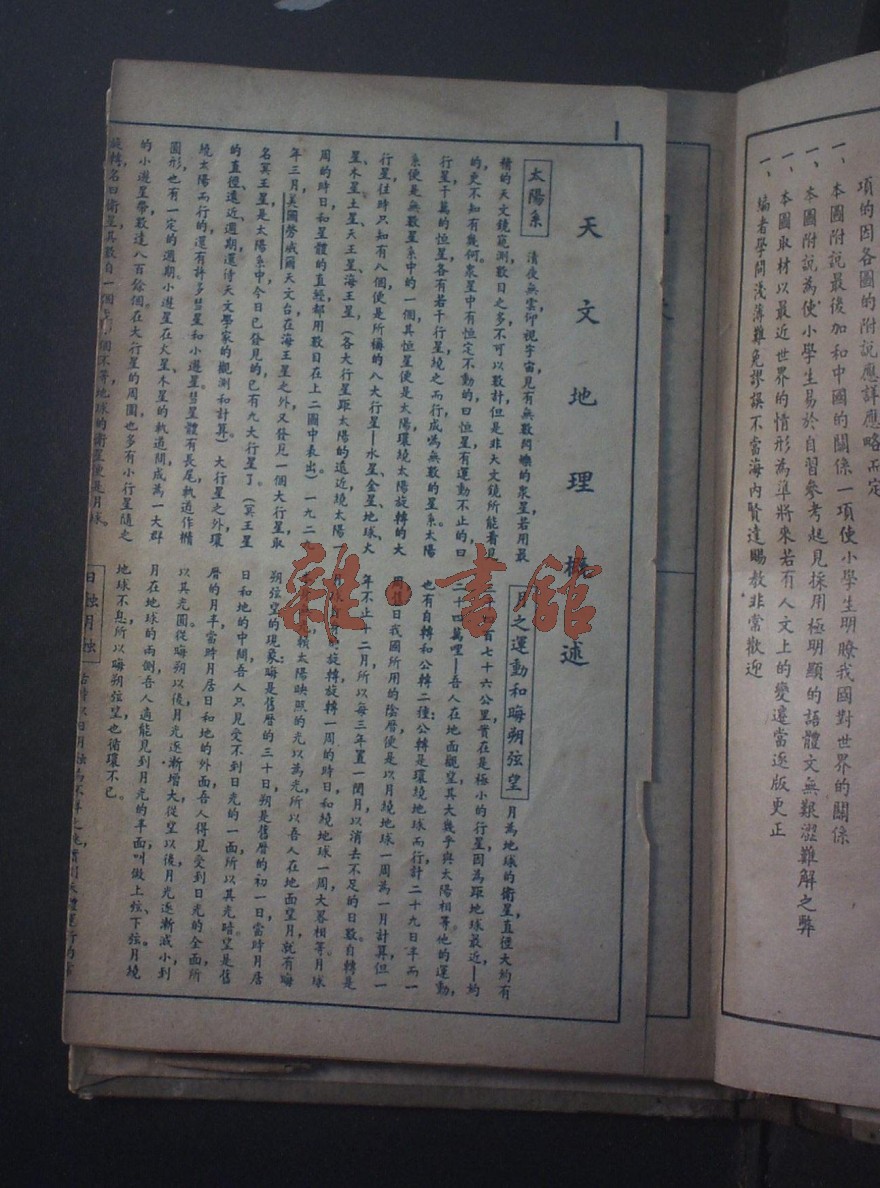 項的因各圖的附說應詳應略而定
一、本圖附說最後加和中國的關係一項使小學生明瞭我國對世界的關係
一、本圖附說為使小學生易於自習參考起見採用極明顯的語體文無艱澀難解之弊
一、本圖取材以最近世界的情形為準將來若有人文上的變遷當逐版更正
一、編者學問淺薄難免謬誤不當海內賢達賜教非常歡迎
1
天文地理概述
太陽系
清夜無雲仰視宇宙,見有無數閃爍的衆星若用最
精的天文鏡窺測,數目之多不可以數計但是非天文鏡所能看見
的,更不知有幾何。衆星中有恒定不動的,曰恒星有運動不止的曰
行星千萬的恒星各有若干行星繞之而行成爲無數的星系。太陽
系便是無數星系中的一個其恒星便是太陽環繞太陽旋轉的大
行星,往時只知有八個,便是所稱的八大行星—水星金星、地球、火
星、木星土星、天王星、海王星,(各大行星距太陽的遠近,繞太陽一
周的時日,和星體的直經都用數目在上二圖中表出)一九二
年三月,美國勞威爾天文台在海王星之外又發見一個大行星,取
名冥王星是太陽系中今日已發見的已有九大行星了。(冥王星
的直徑、遠近、週期,還待天文學家的觀測和計算)大行星之外,環
繞太陽而行的還有許多彗星和小遊星。彗星體有長尾,軌道作橢
圓形也有一定的週期。小遊星在火星、木星的軌道間成為一大群
的小遊星帶,數達八百餘個。在大行星的周圍也多有小行星隨之
旋轉,名曰衛星其數自一個或 個不等,地球的衛星便是月球。
月之運動和晦朔弦望
月為地球的衛星,直徑大約有
三千 百七十六公里,實在是極小的行星,因為距地球最近—約
二十四萬哩—吾人在地面觀望,其大幾乎與太陽相等。他的運動,
也有自轉和公轉二種:公轉是環繞地球而行,計二十九日半而一
周,舊日我國所用的陰曆,便是以月繞地球一周為一月計算,但一
年不止十二月,所以每三年置一閏月,以消去不足的日數。自轉是
月球自身的旋轉,旋轉一周的時日,和繞地球一周大畧相等,月球
賴太陽映照的光以為光,所以吾人在地面望月,就有晦
朔弦望的現象。晦是舊曆的三十日朔是舊曆的初一日,當時月居
日和地的中間,吾人只見受不到日光的一面,所以其光暗,望是舊
曆的月半當時月居日和地的外面,吾人得見受到日光的全面,所
以其光圓,從晦朔以後,月光逐漸增大,從望以後,月光逐漸減小,到
月在地球的兩側吾人適能見到月光的半面,叫做上弦、下弦。月繞
地球不息,所以晦朔弦望,也循環不已。
日蝕月蝕
雜·書館